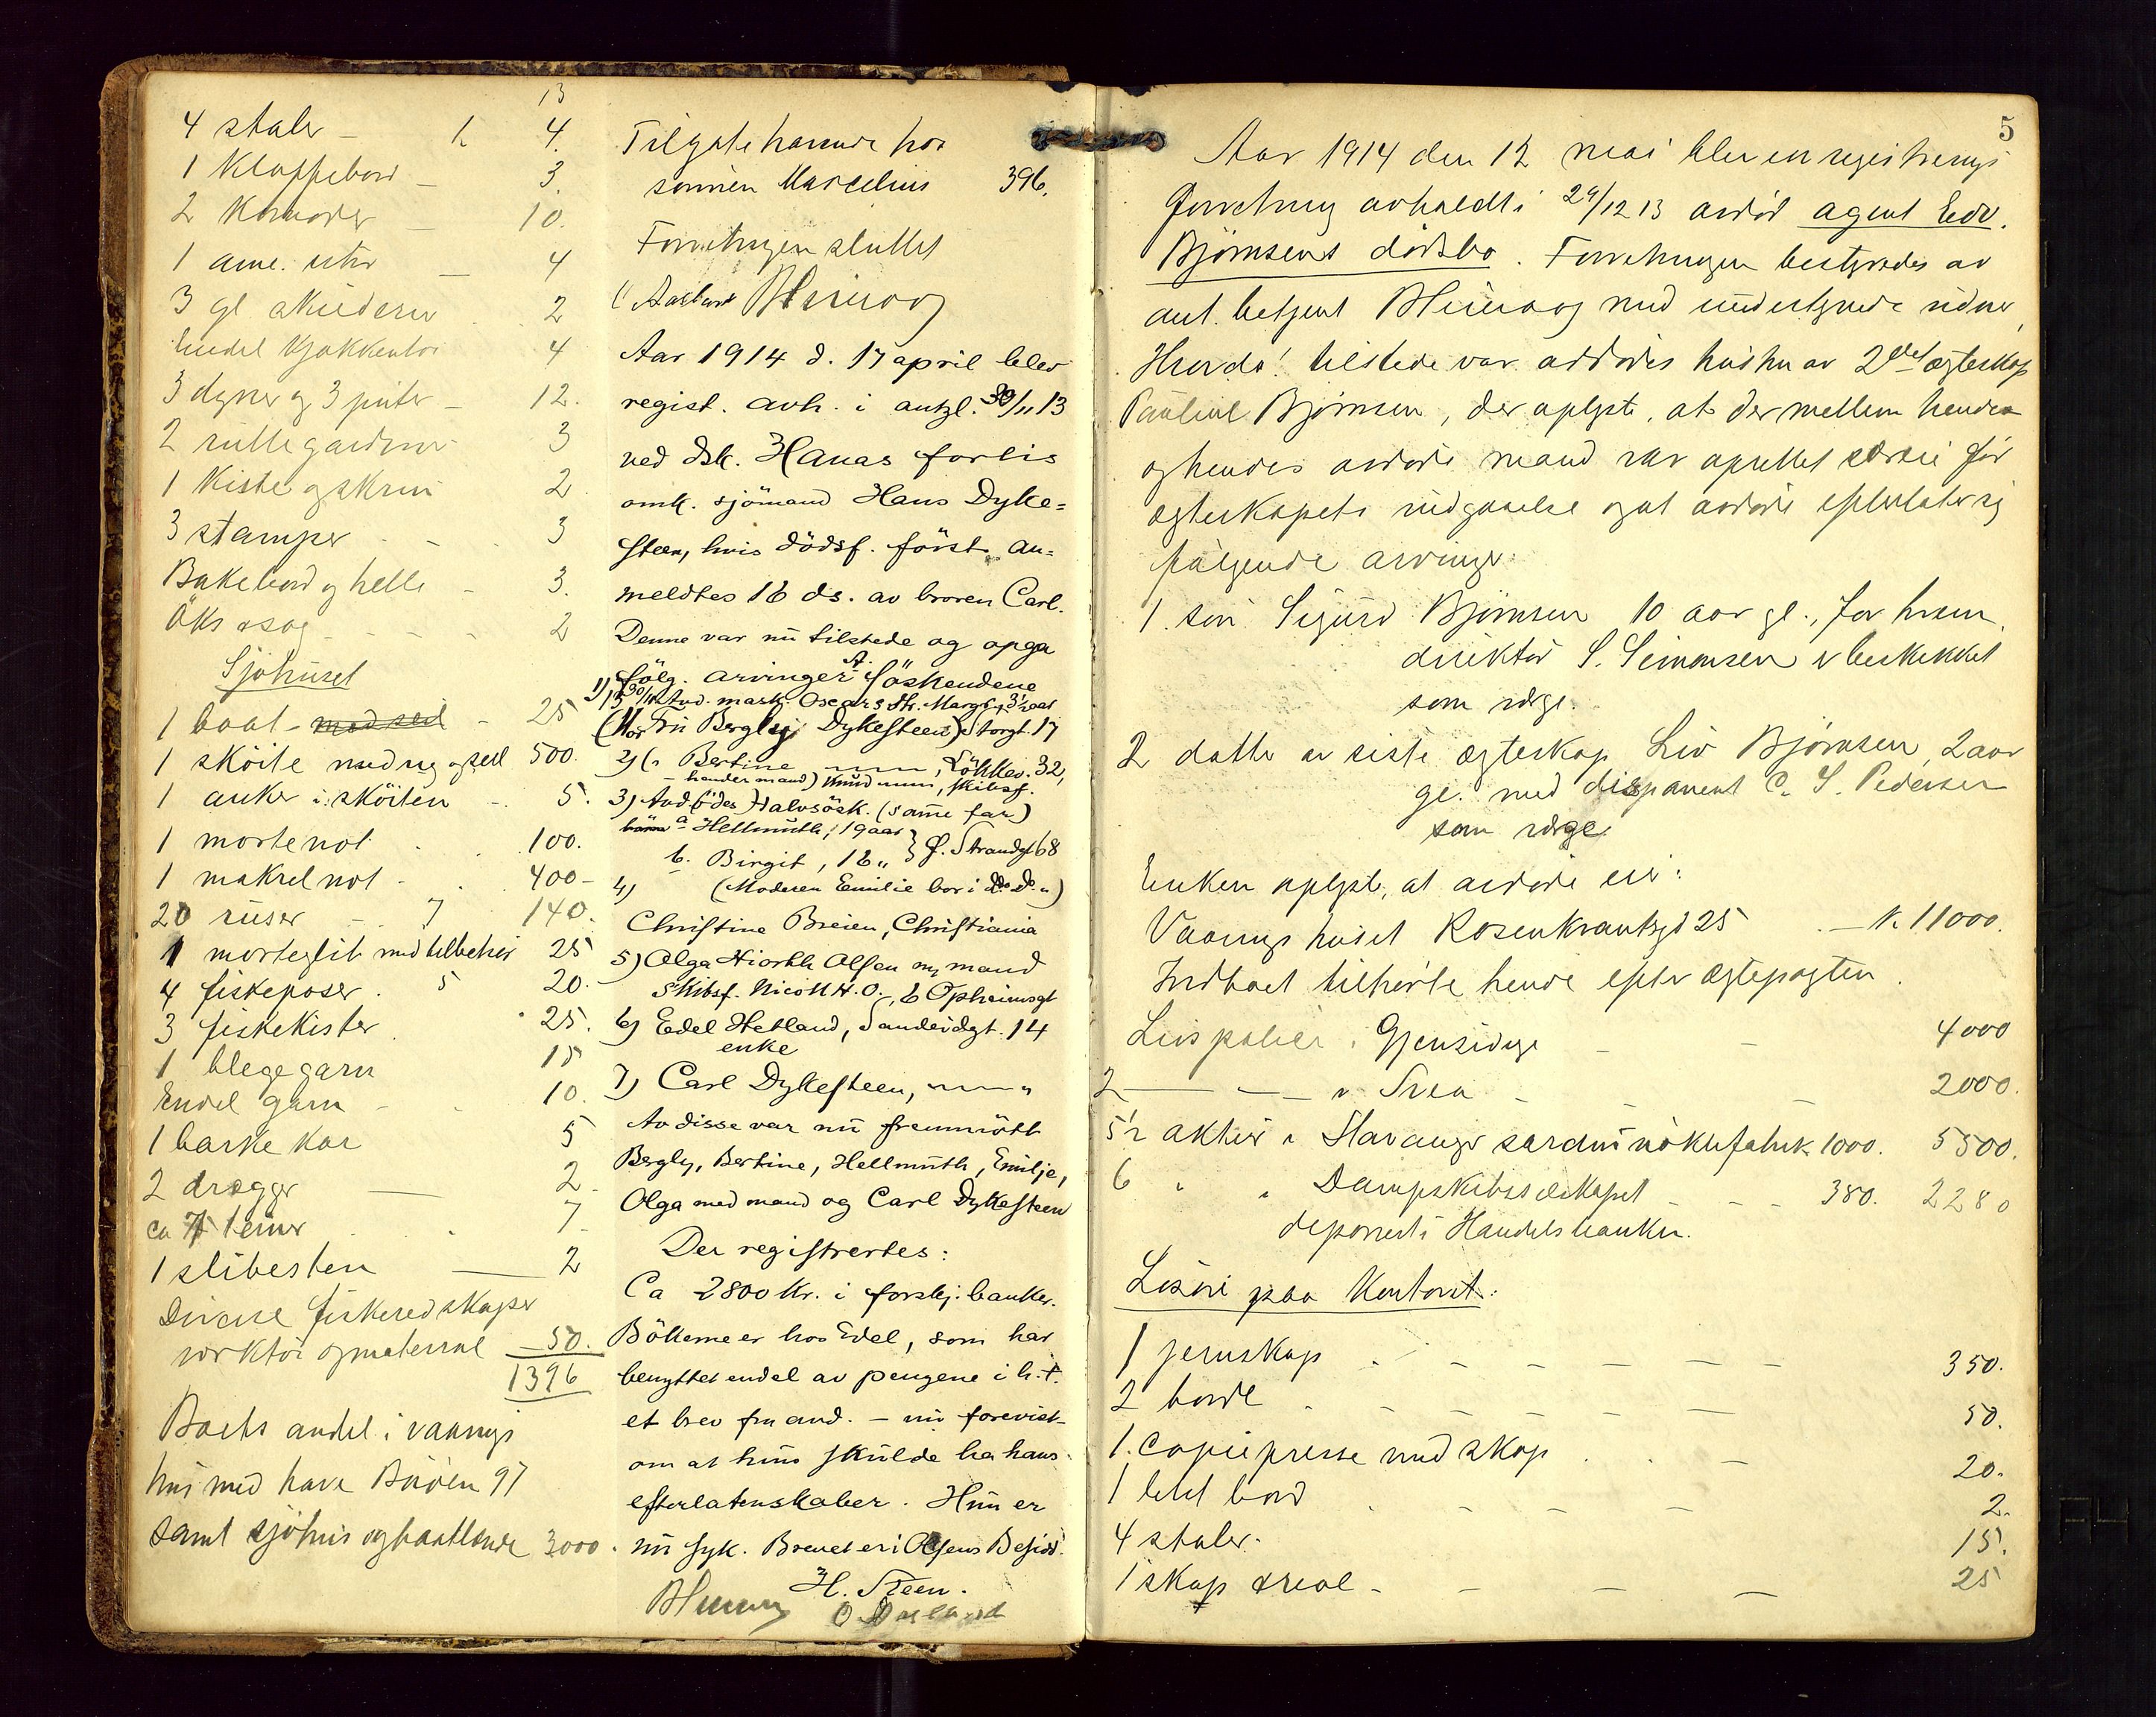 13
4 stoler - 1 4.
1 Klappebord - 3.
2 Komoder - 10.
1 ame. - 4
3 gl skilderier 2
Endel Kjøkkentøi 4
3 dyner og 3 puter - 12.
2 rullegardiner 3
1 Kiste og skrin 2
3 stamper - - 3
Bakebord og helle - 3.
Öks & sag - - - 2
Sjöhuset
1 baat - med seil - 25
1 sköite med og seil 500.
1 anker i sköiten - 5.
1 mortenot 100.
1 makrelnot - 400-
20 ruser - 7 140.
1 morteglip med tilbehör 25
4 fiskeposer . 5 20.
3 fiskekister 25.
1 blegegarn 15
Endel garn - 10.
1 barkekar 5
2 drægger — 2
ca 7 teiner 7
1 slibesten — 2
Diverse fiskeredskaper
verktøi og material - 50.
1396
Boets andel i vaanings
hus med have Büöen 97
samt sjöhus og baatlænde 3000.
Tilgodehavende hos
sønnen Marcelius 396.
Forretningen sluttet
Aar 1914 d. 17 april blev
regist. avh. i antgl. 30/11 13
ved dsk. Hanas forlis
omk. sjömand Hans Dyke=
steen, hvis dödsf. först an=
meldtes 16 ds. av broren Carl.
Denne var nu tilstede og opga
fölg. arvinger: Söskendene
1) Oscar
(Mor Fru Bergly Dykesteen) Storgt. 17
2) Bertine —"—, Lökkev. 32,
- hendes mand) Knud —"—, skibsf.
3) Avdödes Halvsösk. (samme far)
a Hellmuth, 19 aar
b. Birgit, 16 " } Ö. Strandgt 68
4) (Moderen Emilie bor i do do ")
Christine Breien, Christiania
5) Olga Hiorth Olsen m/ mand
Skibsf. Nicoll H. O., 6 Opheimsgt
6) Edel Hetland, Sandeidgt. 14
enke
7) Carl Dykesteen, —"—
Av disse var nu fremmött
Bergly, Bertine, Hellmuth, Emilje,
Olga med mand og Carl Dykesteen
Der registrertes:
Ca 2800 Kr. i forskj. banker.
Bökerne er hos Edel, som har
benyttet endel av pengene i h.t.
et brev fra avd. - nu forevist -
om at hun skulde ha hans
efterlatenskaber. Hun er
nu syk. Brevet er i Olsens Besidd.
H. Steen.
5
Aar 1914 den 12 mai blev en registrerings
forretning avholdt i 29/12 13 avdöd agent Edv.
Björnsens dödsbo. Forretningen bestyredes av
aut. betjent med undertegnede vidner
Hvorda! tilstede var avdödes hustru av 2det ægteskap
Pauline Björnsen, der oplyste, at der mellem hende
og hendes avdöde mand var oprettet særeie før
ægteskapets indgaaelse og at avdöde efterlater sig
følgende arvinger:
1. søn Sigurd Björnsen 10 aar gl., for hvem
direktør S. Simonsen er beskikket
som værge.
2 datter av siste ægteskap Liv Björnsen, 2 aar
gl. med disponent C. S. Pedersen
som værge.
Enken oplyste, at avdöde eier:
Vaaningshuset Rosenkrantzgt 25 - K. 11000.
Indboet tilhörte hende efter ægtepagten.
Livspolice i Gjensidige - - 4000
2 — — - i Svea - - - 2000.
5½ aktier i Stavanger sardinnökkelfabrik 1000. 5500.
6 " " Dampskibsselskapet - - 380. 2280
deponert i Handelsbanken.
Løsøre paa Kontoret:
1 jernskap - - - - - - 350.
2 borde - - - - - - 50.
1. copiepresse med skap . . - 20.
1 litet bord - - - - 2.
4 stoler. 15.
1 skap & reol - - - - 25